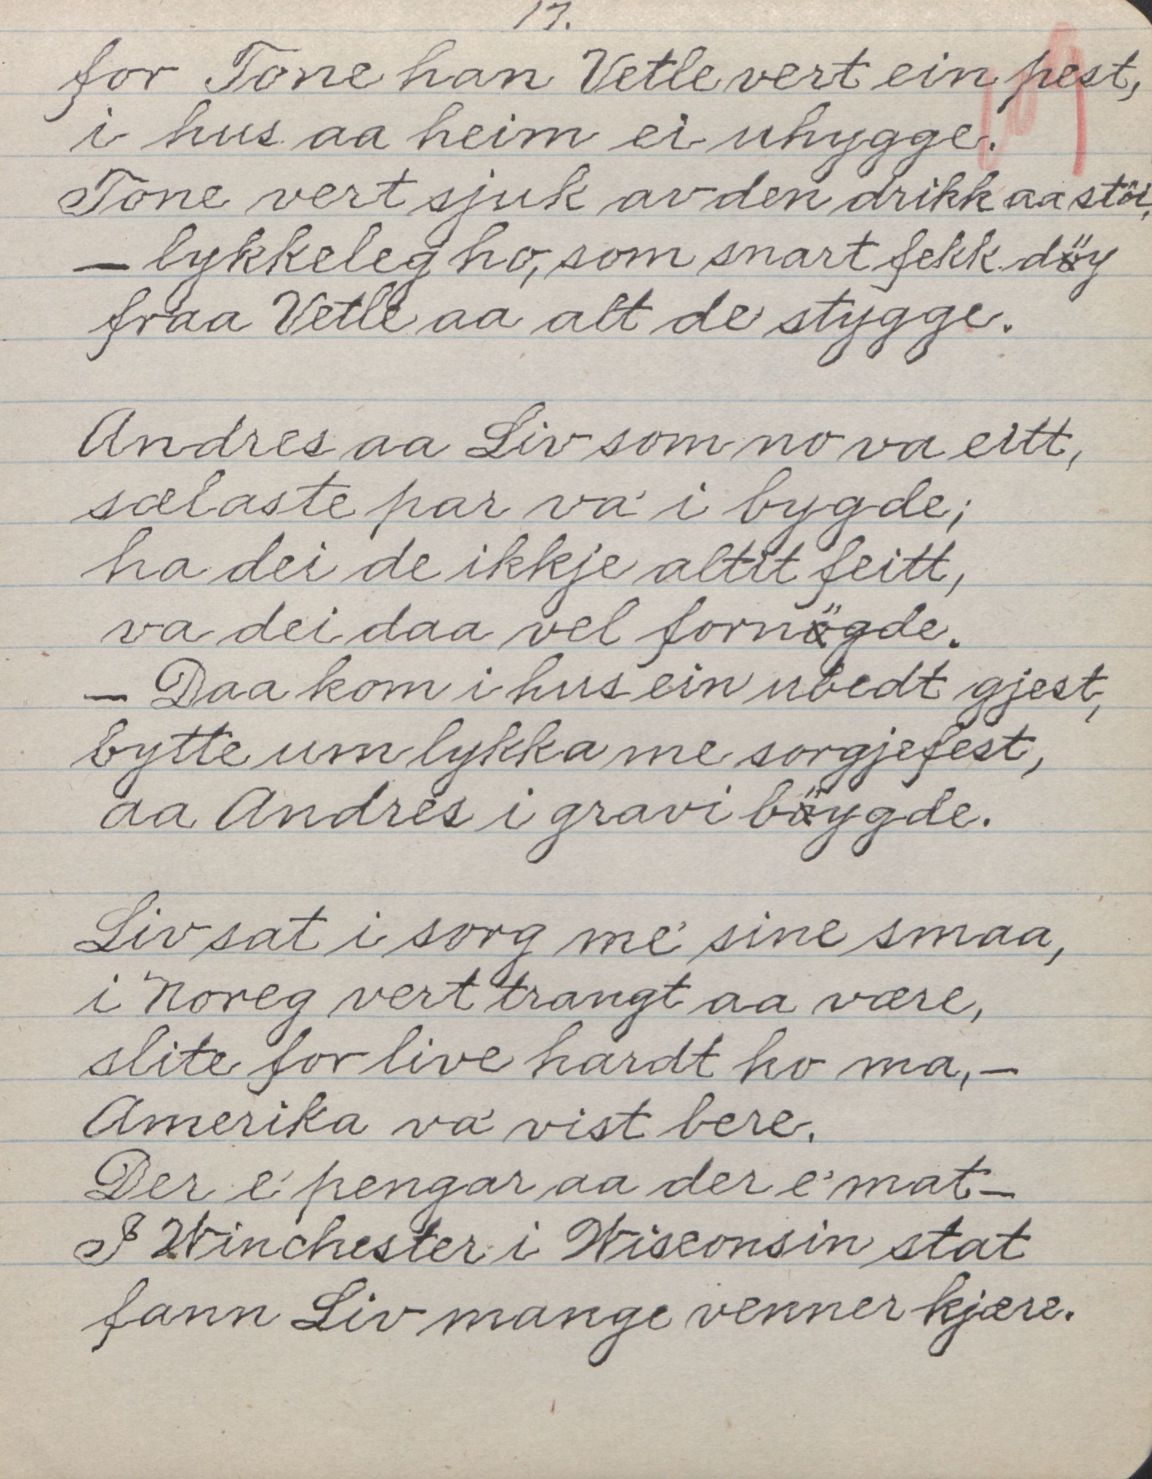 17.
for Tone han Vetle vert ein pest,
i hus aa heim ei uhygge.
Tone vert sjuk av den drikk aa stöi,
— lykkeleg ho, som snart fekk döy
fraa Vetle aa alt de stygge.
Andres aa Liv som no va eitt,
sælaste par va' i bygde;
ha dei de ikkje altit feitt,
va dei daa vel fornögde.
— Daa kom i hus ein ubedt gjest,
bytte um lykka me sorgjefest,
aa Andres i gravi böygde.
Liv sat i sorg me' sine smaa,
i Noreg vert trangt aa være,
slite for live hardt ho ma, —
Amerika va' vist bere.
Der e' pengar aa der e' mat —
I Winchester i Wisconsin stat
fann Liv mange venner kjære.